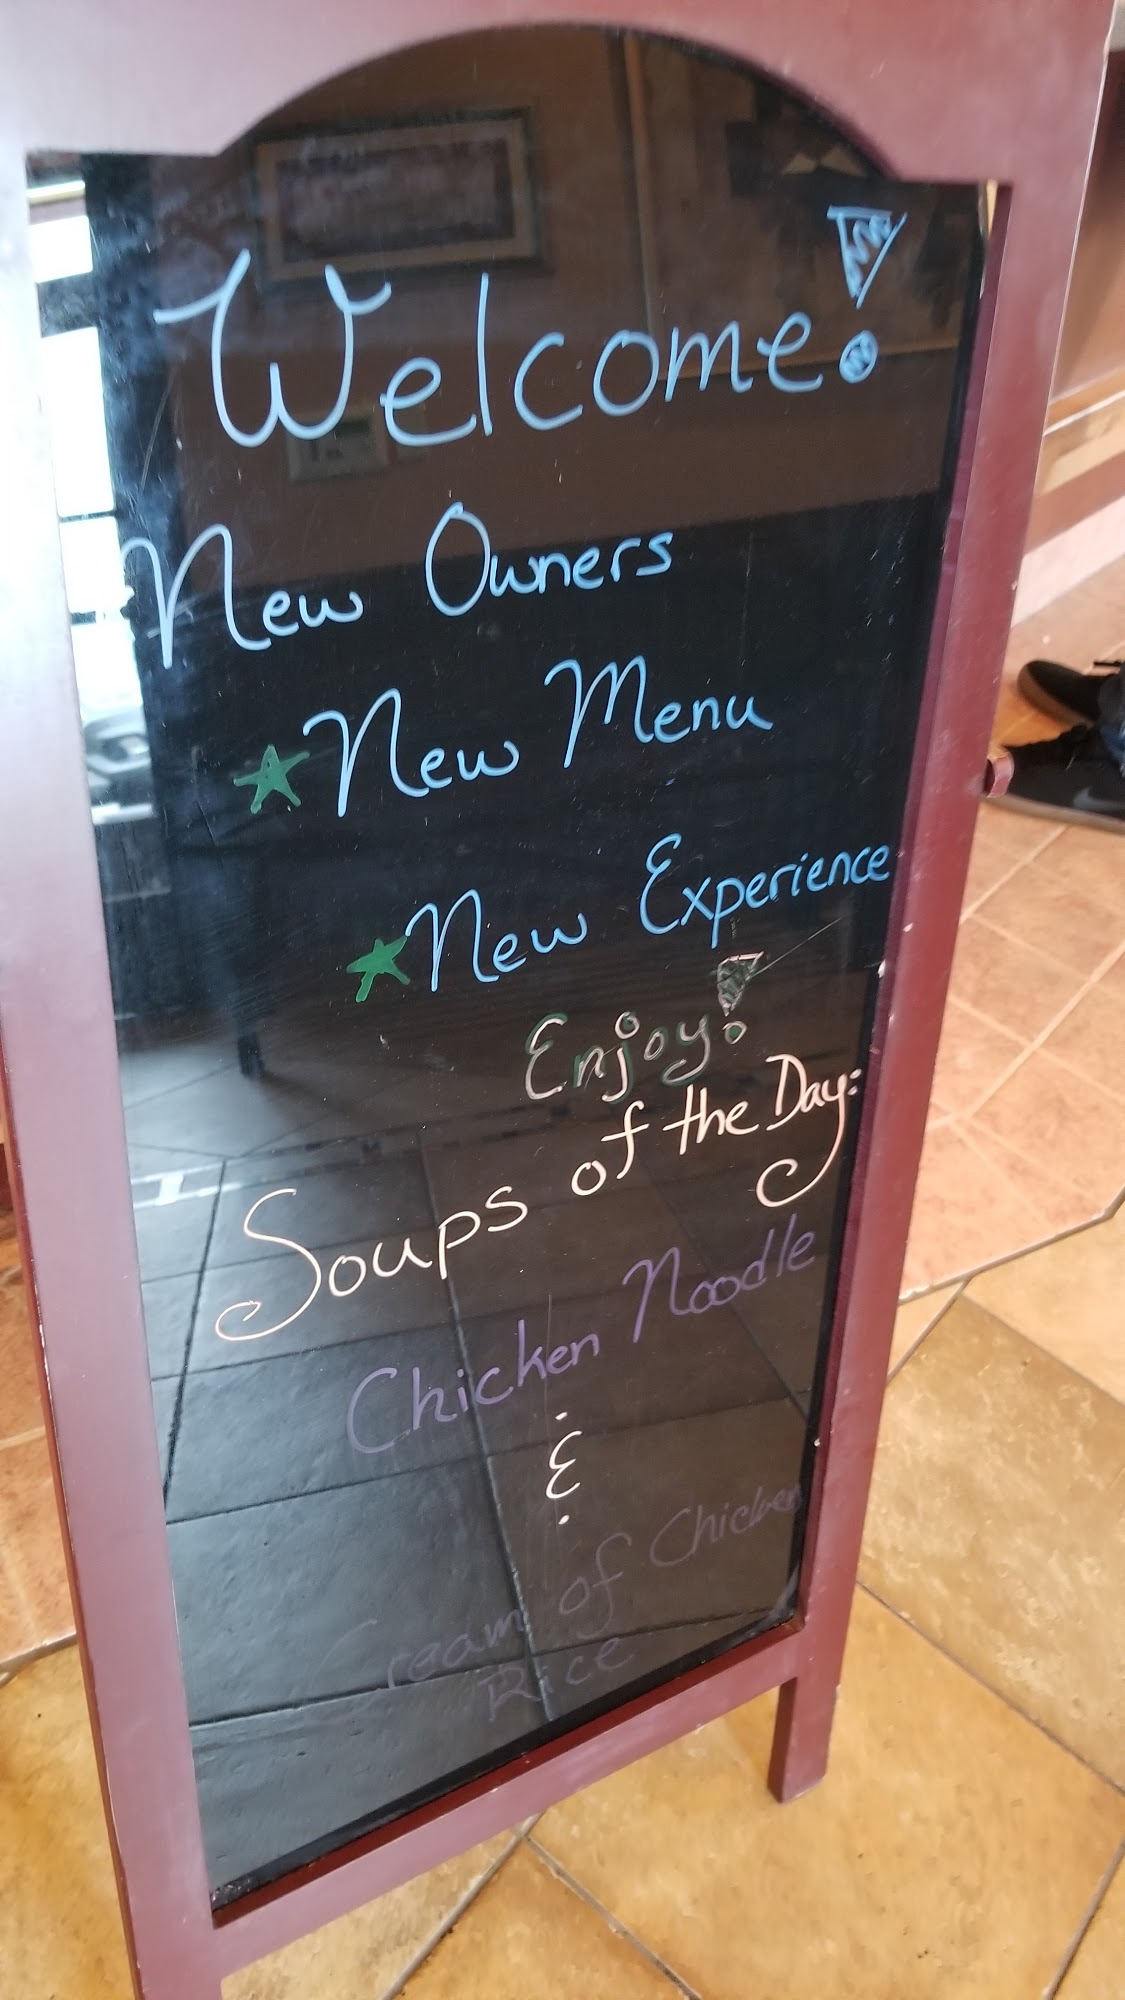 Welcome!
New Owners
New Menu
New Experience
Enjoy!
Soups of the Day:
Chicken Noodle
&
Cream of Chicken
Rice